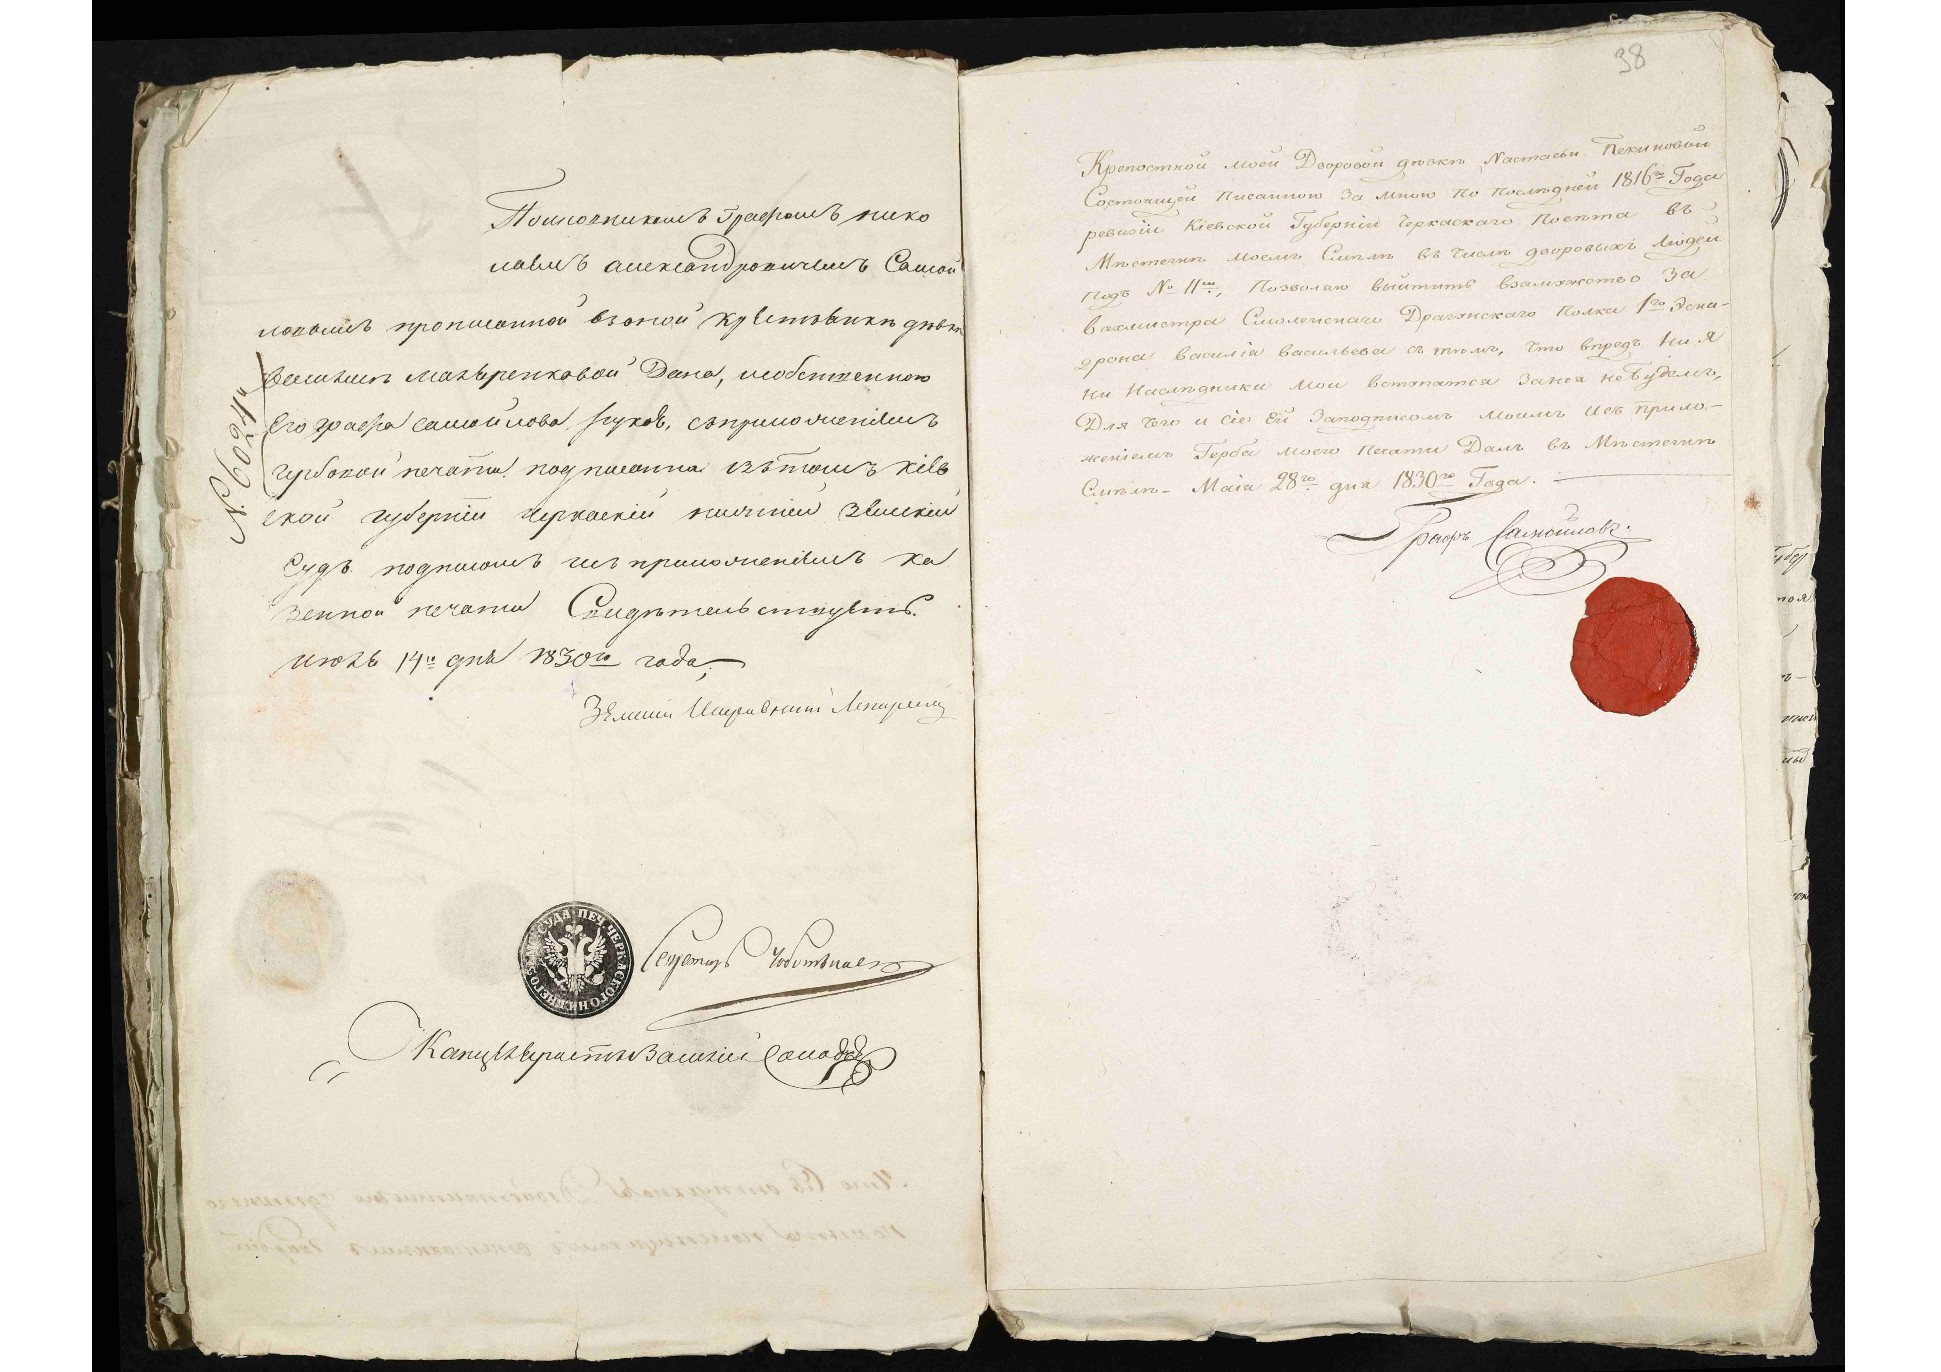 Полковникомъ Графомъ нико
лаемъ александровичемъ Самой
ловымъ прописанной въ оной крестьянкѣ дѣвкѣ
Дана, собственною
Его графа самойлова рукою, съ приложеніемъ
гербовой печати подписанна въ томъ Кіев
ской губерніи черкаскій нижній Земскій
Судъ подписомъ и съ приложеніемъ ка
зенной печати Свидѣтельствуетъ.
июня 14го дня 1830го года,
№ 9024й
Земскій Исправникъ
ПЕЧ. ЧЕРКАСКОГО НИЖНЕГО ЗЕМС. СУДА
Секретарь
Канцеляристъ Василій
38
Крепостной моей Дворовой дѣвкѣ Настасьи Пекиновой
Состоящей писанною За мною по послѣдней 1816го Года
ревизіи Кіевской Губерніи Черкаскаго Повѣта въ
Мѣстечкѣ моемъ Смѣлѣ въ числѣ дворовыхъ Людей
подъ № 11мъ, позволяю выйтить взамужство За
вахмистра Смоленскаго Драгунскаго Полка 1го Эска-
дрона василія васильева съ тѣмъ, что впредь ни я
ни Наслѣдники мои вступатся Занея небудемъ,
Для чего и сіе Ей Заподписомъ моимъ исъ прило-
женіемъ Герба моего Печати Далъ въ Мѣстечкѣ
Смѣлѣ- Маія 28го дня 1830го Года.
Графъ Самойловъ.